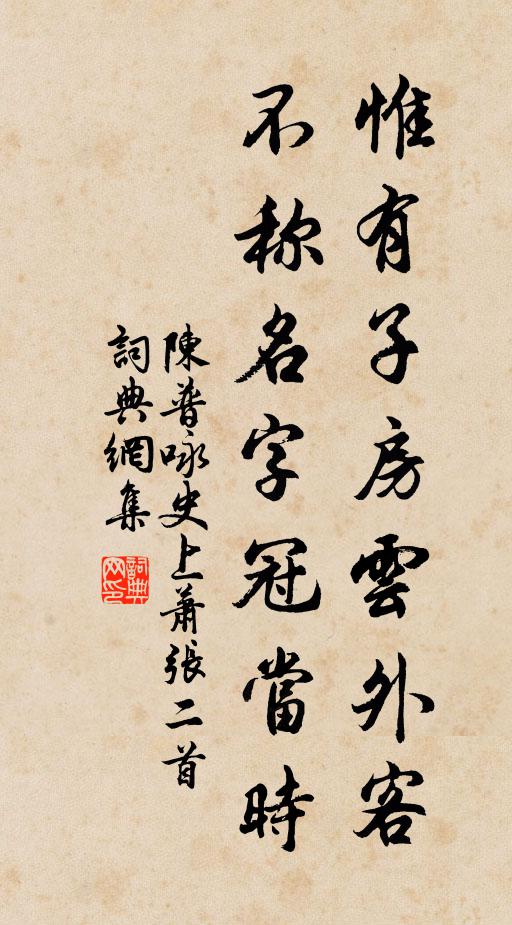 惟有子房雲外客
不称名字冠當時
陳普咏史上蕭張二首
詞典網集
詞典网印